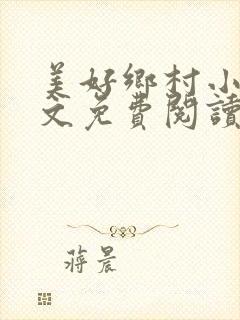 美好鄉村小
文免費閱讀
蔣晨